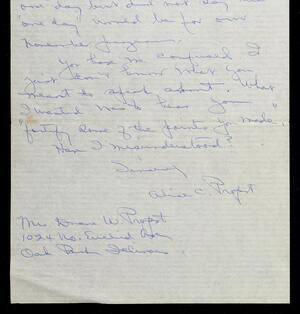 one day but did not say
one day would be for our
November program.
You have me confused I
just don't know what you
meant to speak about. What
I wanted was to hear you
"fortify some of the points you made"
Have I misunderstood?
Sincerely
Alice C. Propst
Mrs. Duane W. Propst
1024 No. Euclid Ave
Oak Park Illinois